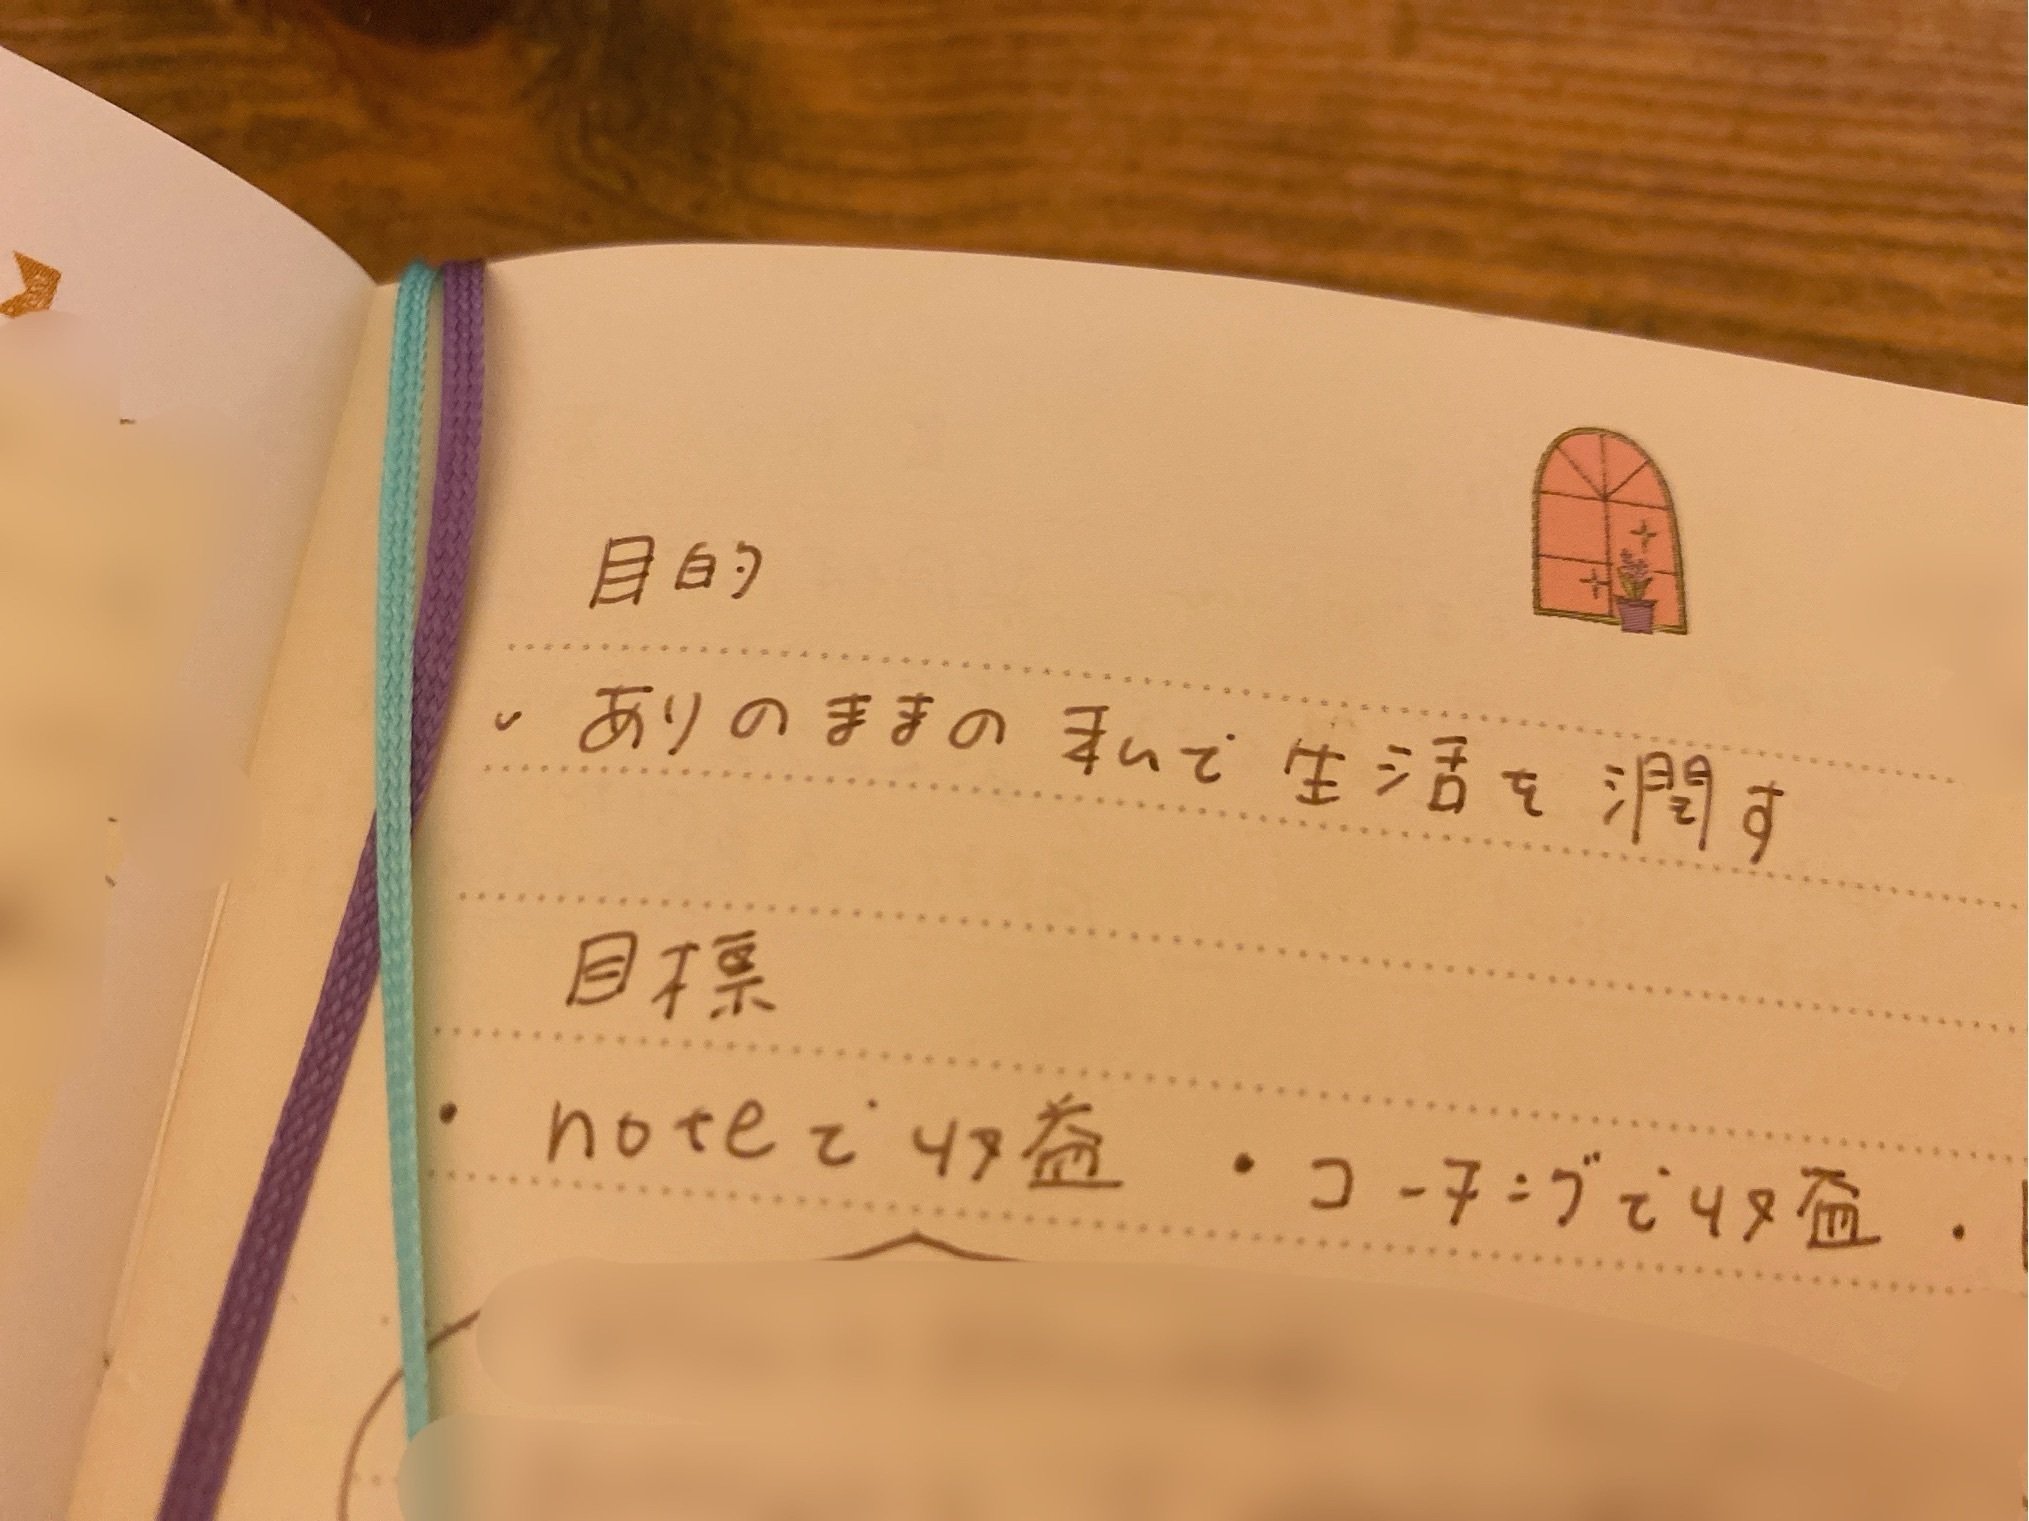 目的
✓ ありのままの私で生活を潤す
目標
・noteで収益 ・コーチングで収益 ・